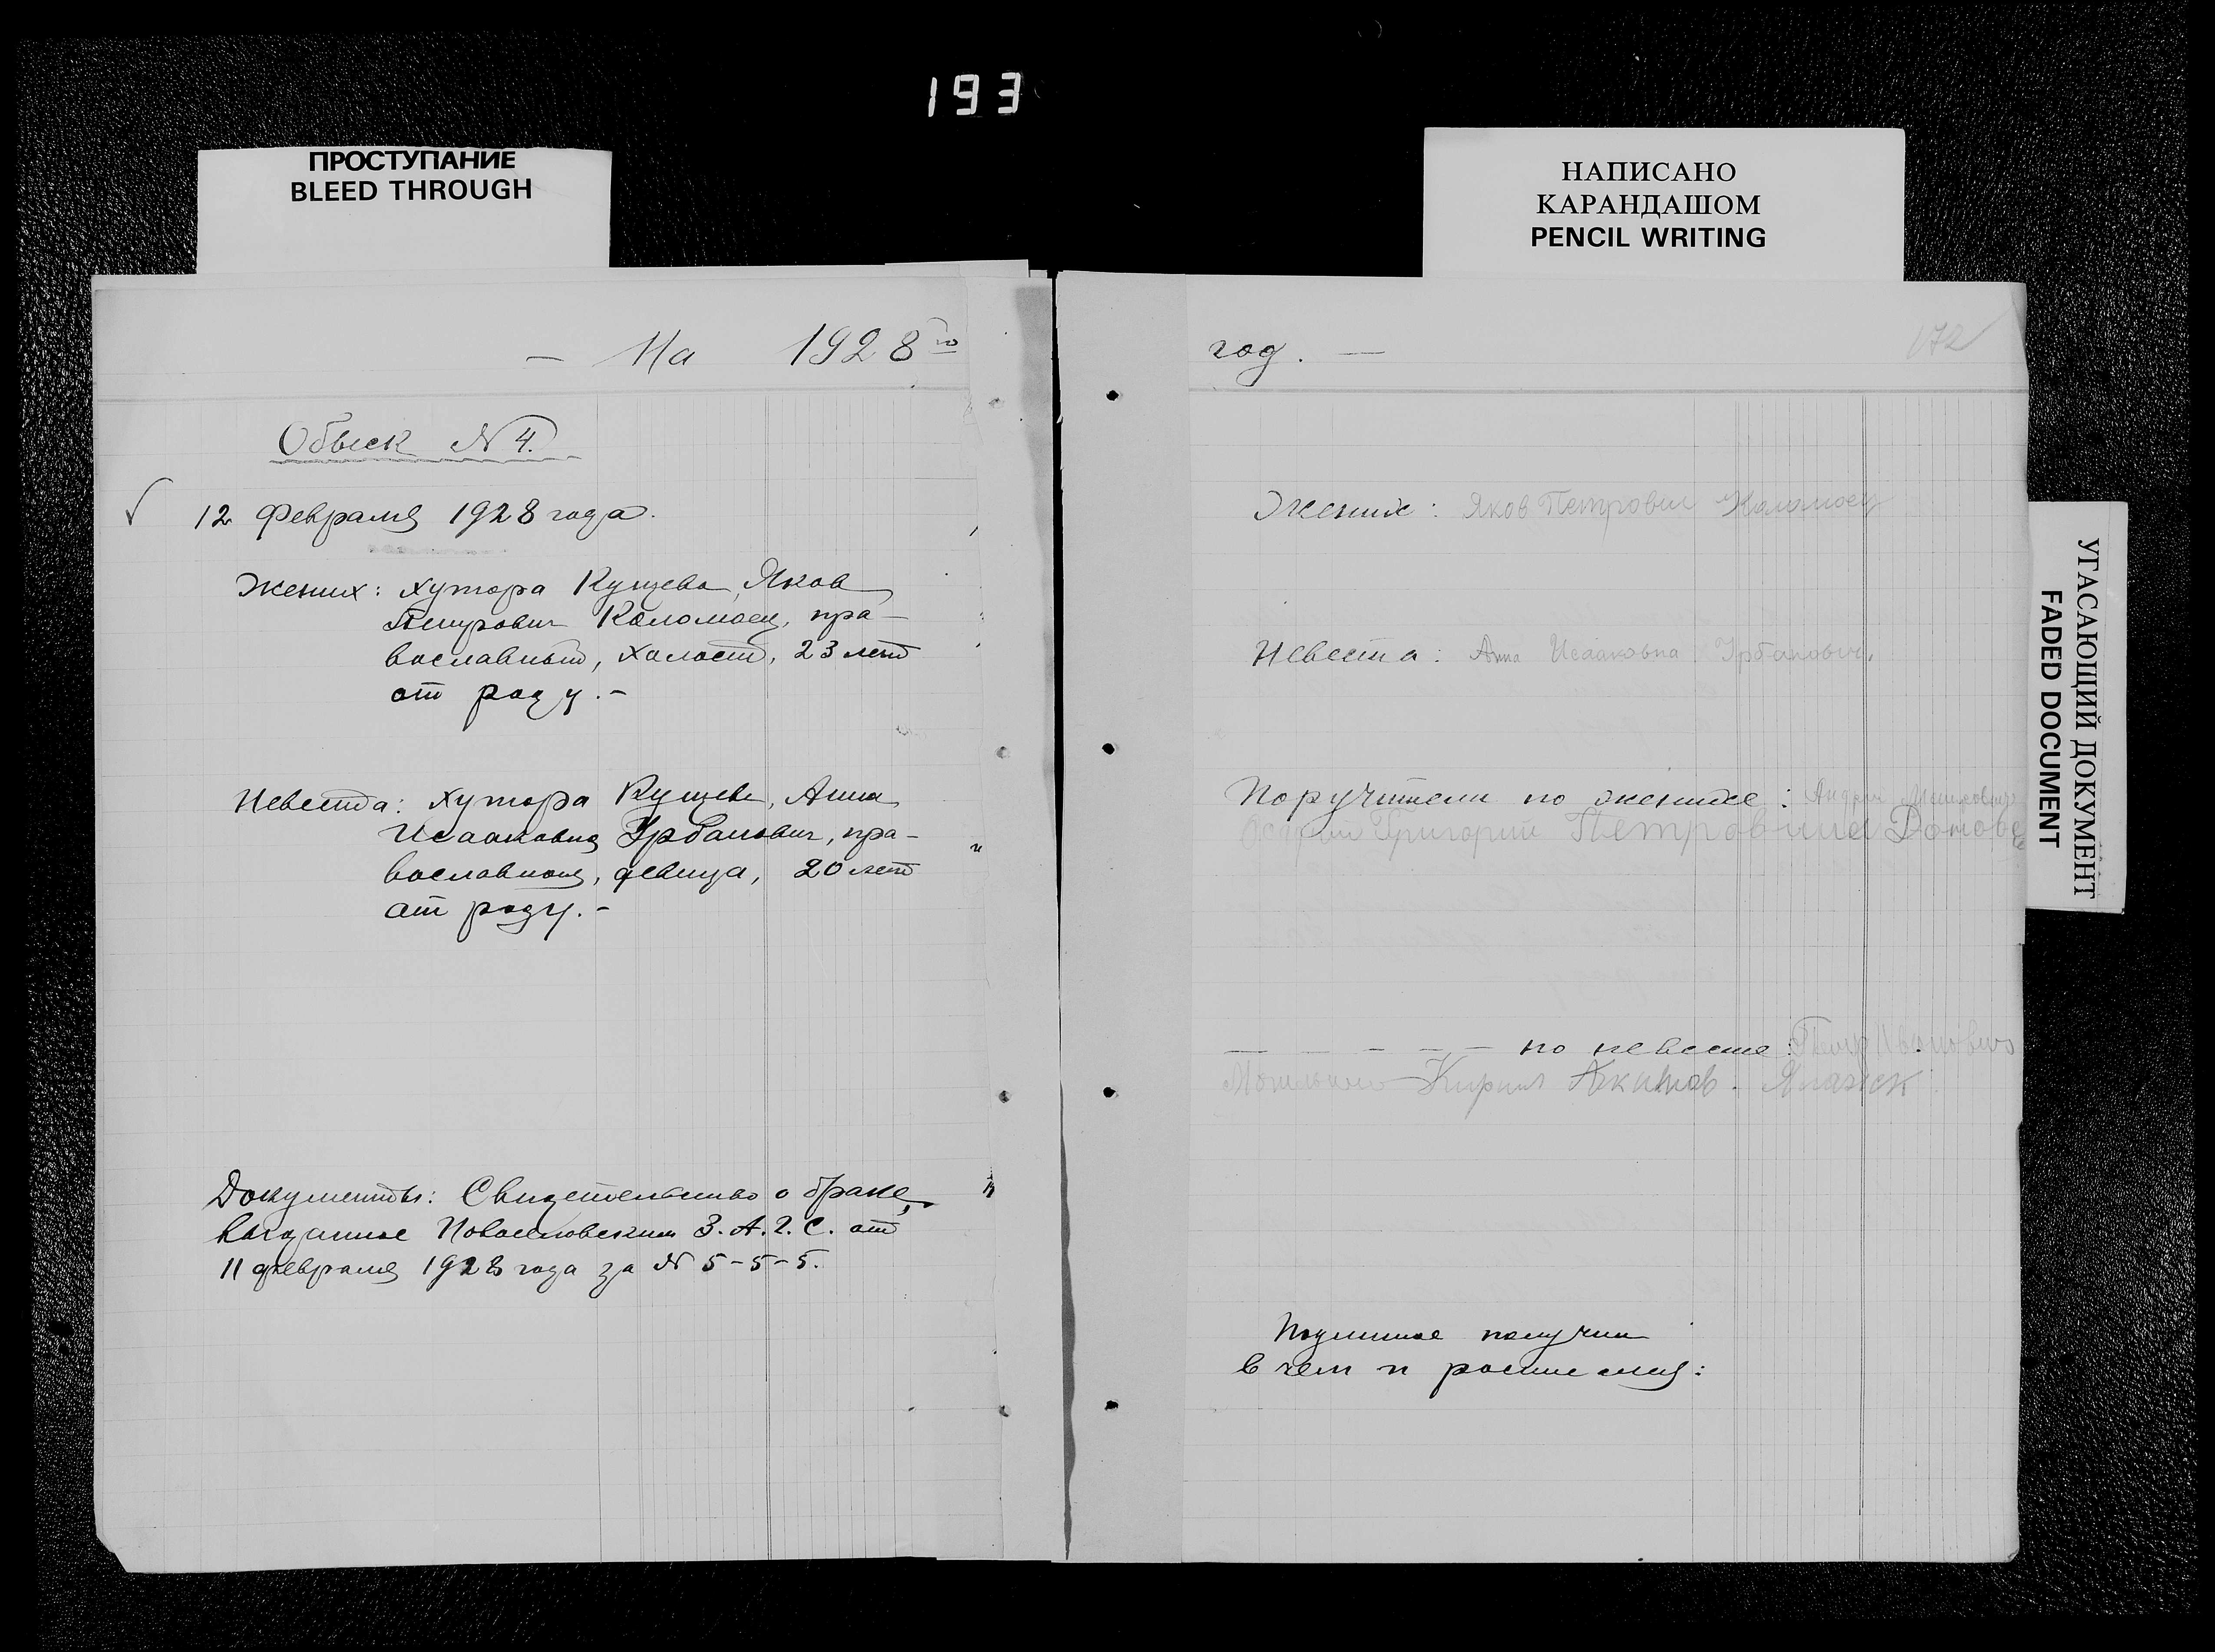 193
ПРОСТУПАНИЕ
BLEED THROUGH
НАПИСАНО
КАРАНДАШОМ
PENCIL WRITING
— На 1928го
Обыск № 4.
12 Февраля 1928 года.
Жених: хутора Кущева, Яков
Петрович Коломоец, пра-
вославный, холост, 23 лет
от роду.-
Невеста: хутора Кущева, Анна
Исааковна Урбанович, пра-
вославная, девица, 20 лет
от роду.-
Документы: Свидетельство о браке,
выданное Новоселовским З.А.Г.С. от
11 февраля 1928 года за № 5-5-5.
год. —
172
Жених: Яков Петрович Коломоец
Невеста: Анна Исааковна Урбанович.
Поручители по женихе: Андрей
Григорий Петрович
— — — — — по невесте: Петр Иванович
Кирил Акимов.
Подлинное получил
в чем и росписался:
УГАСАЮЩИЙ ДОКУМЕНТ
FADED DOCUMENT